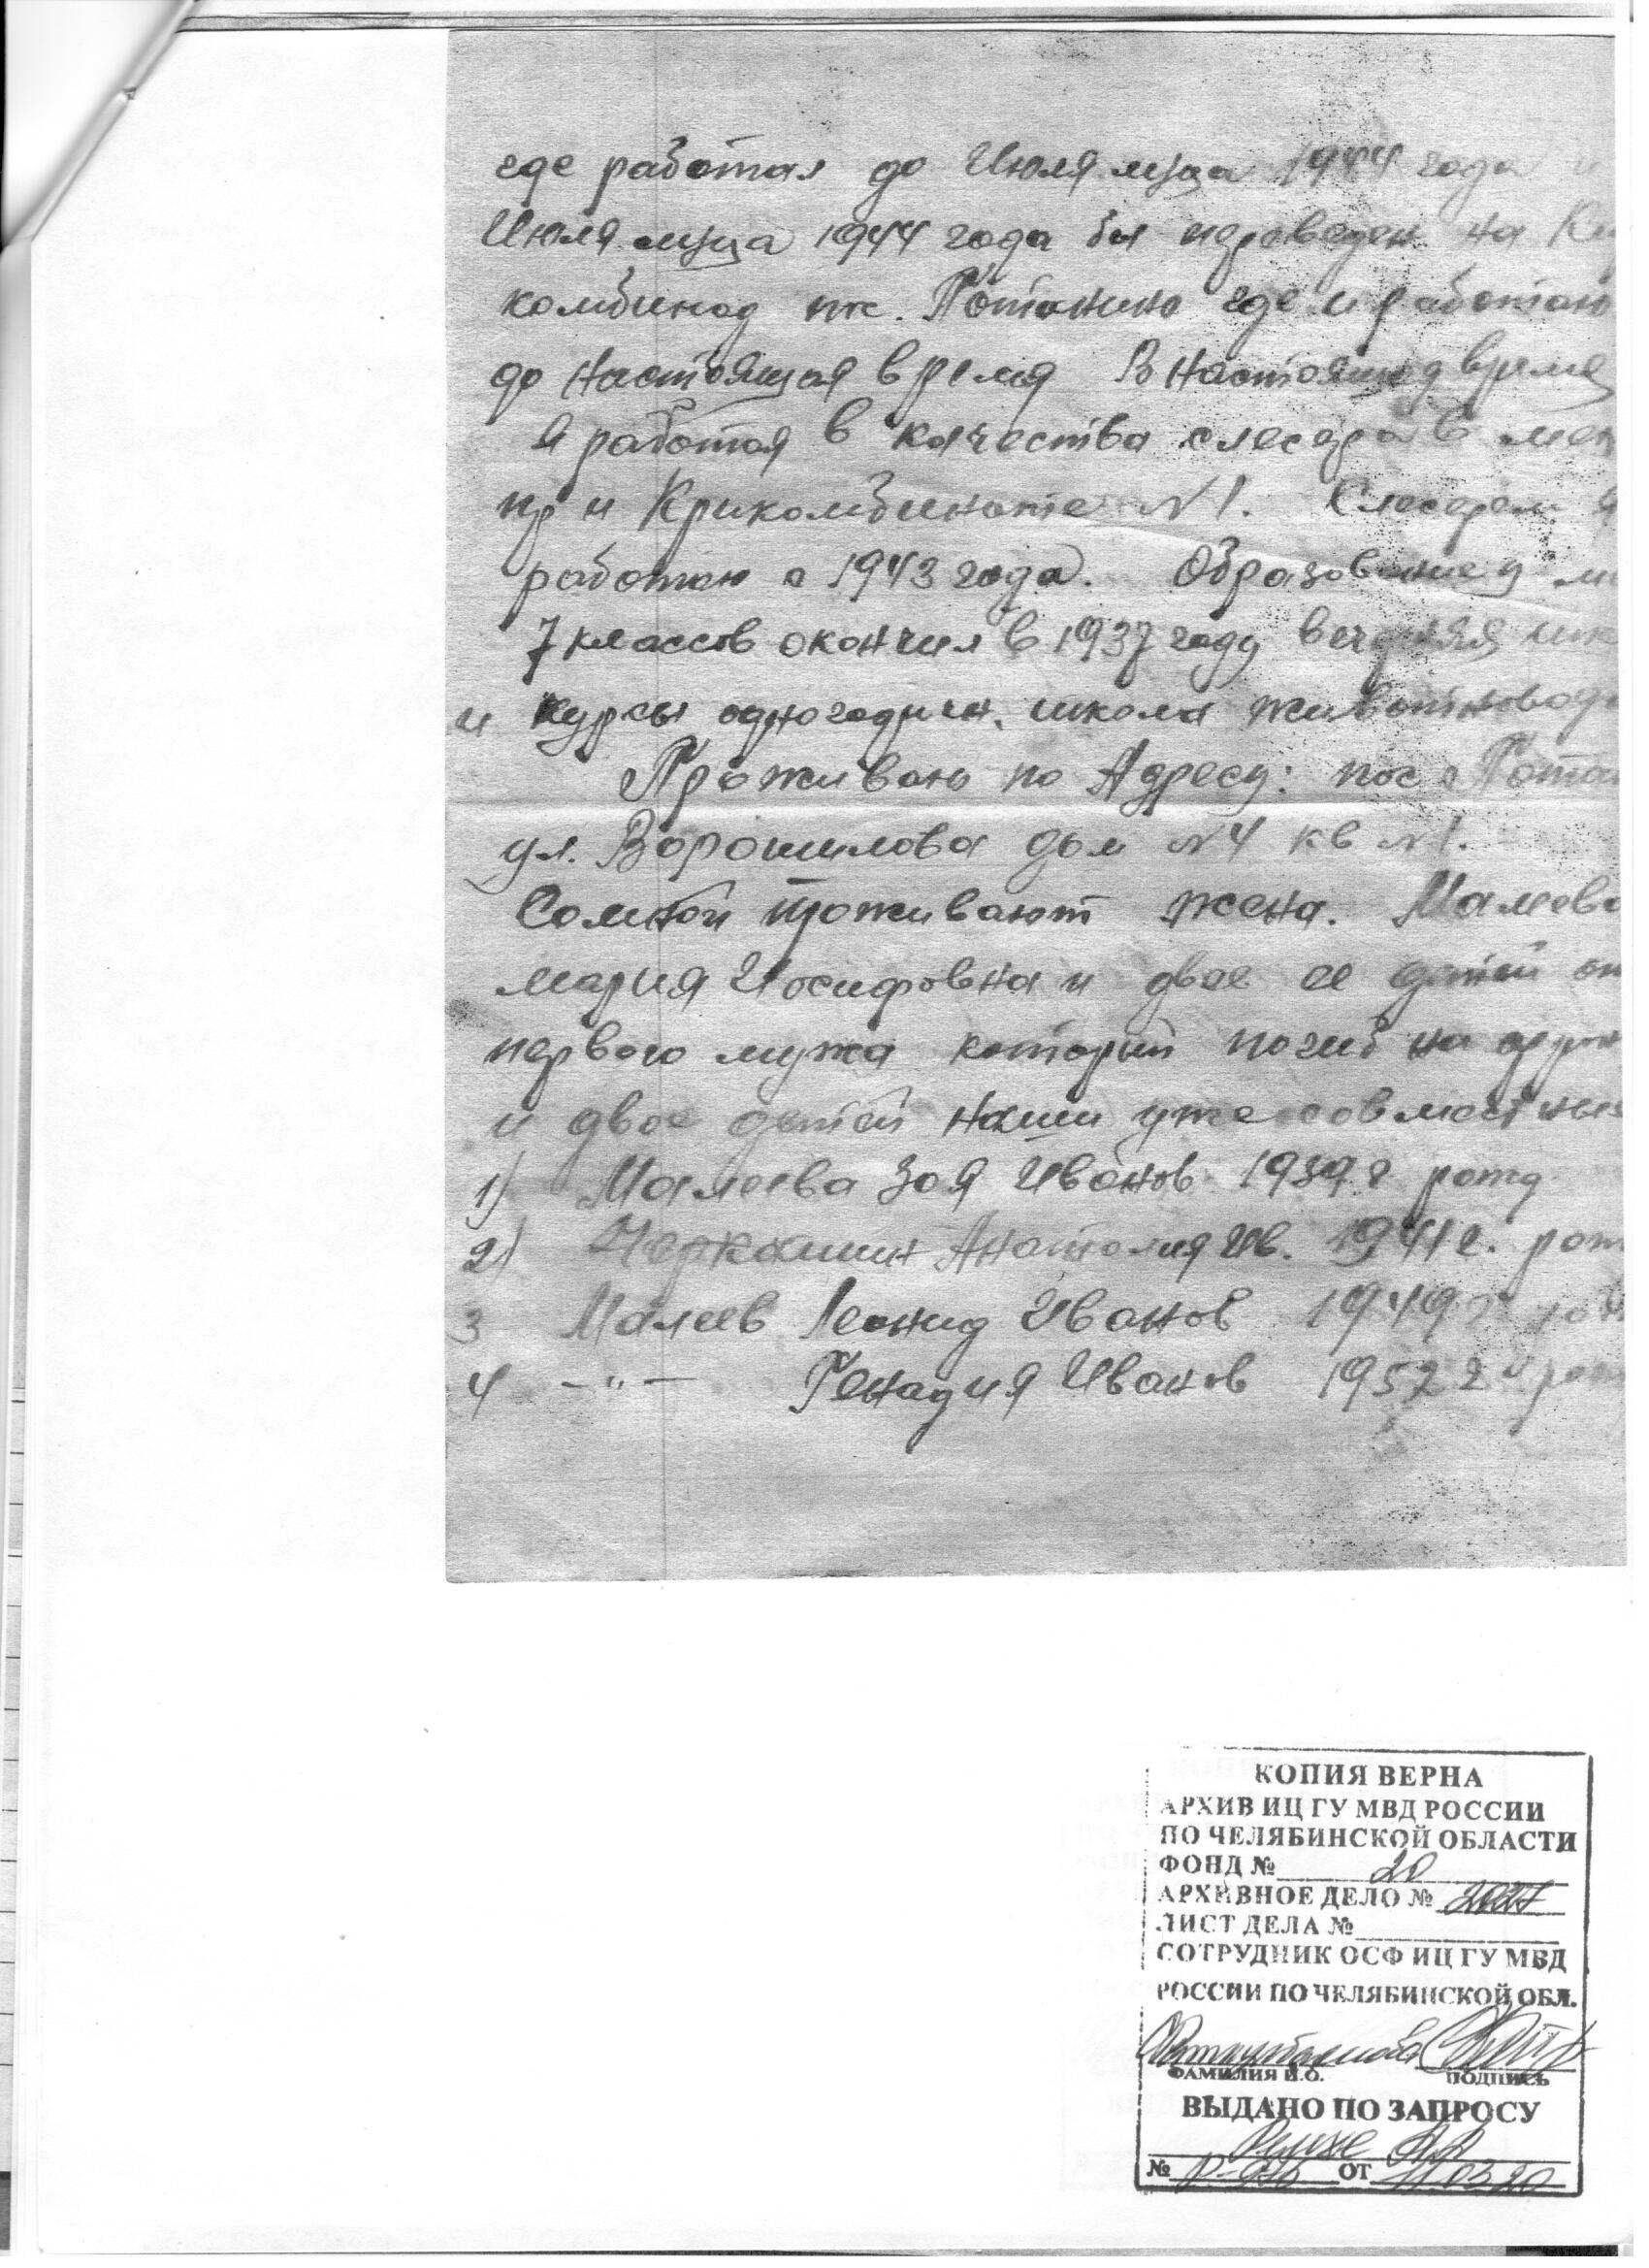 где работал до Июля м-ца 1944 года и
Июля м-ца 1944 года бы переведен на
комбинад пос. Потанино где и работаю
до настоящая время В настоящед время
я работая в качества слесаря в мех
при Крикомбинате №1. Слесарем я
работаю с 1943 года. Образование у м
7 классов окончил в 1937 году вечерняя шк
и курсы одногодичн. школа животновод
Проживаю по Адресу: пос. Пота
ул. Ворошилова дом №4 кв №1.
Сомной проживают жена. Малеева
мария Иосифовна и двое ее детей от
первого мужа который погиб на фрон
и двое детей наши уже совместные
1) Малеева Зоя Иванов 1939 г рожд
2) Черкашин Анатолия Ив. 1941 г. рож
3 Малеев Леонид Иванов 1949 г рож
4 –"– Генадия Иванов 1952 г рож
КОПИЯ ВЕРНА
АРХИВ ИЦ ГУ МВД РОССИИ
ПО ЧЕЛЯБИНСКОЙ ОБЛАСТИ
ФОНД № 20
АРХИВНОЕ ДЕЛО №
ЛИСТ ДЕЛА №
СОТРУДНИК ОСФ ИЦ ГУ МВД
РОССИИ ПО ЧЕЛЯБИНСКОЙ ОБЛ.
ФАМИЛИЯ И.О. ПОДПИСЬ
ВЫДАНО ПО ЗАПРОСУ
№ ОТ 11 03 20